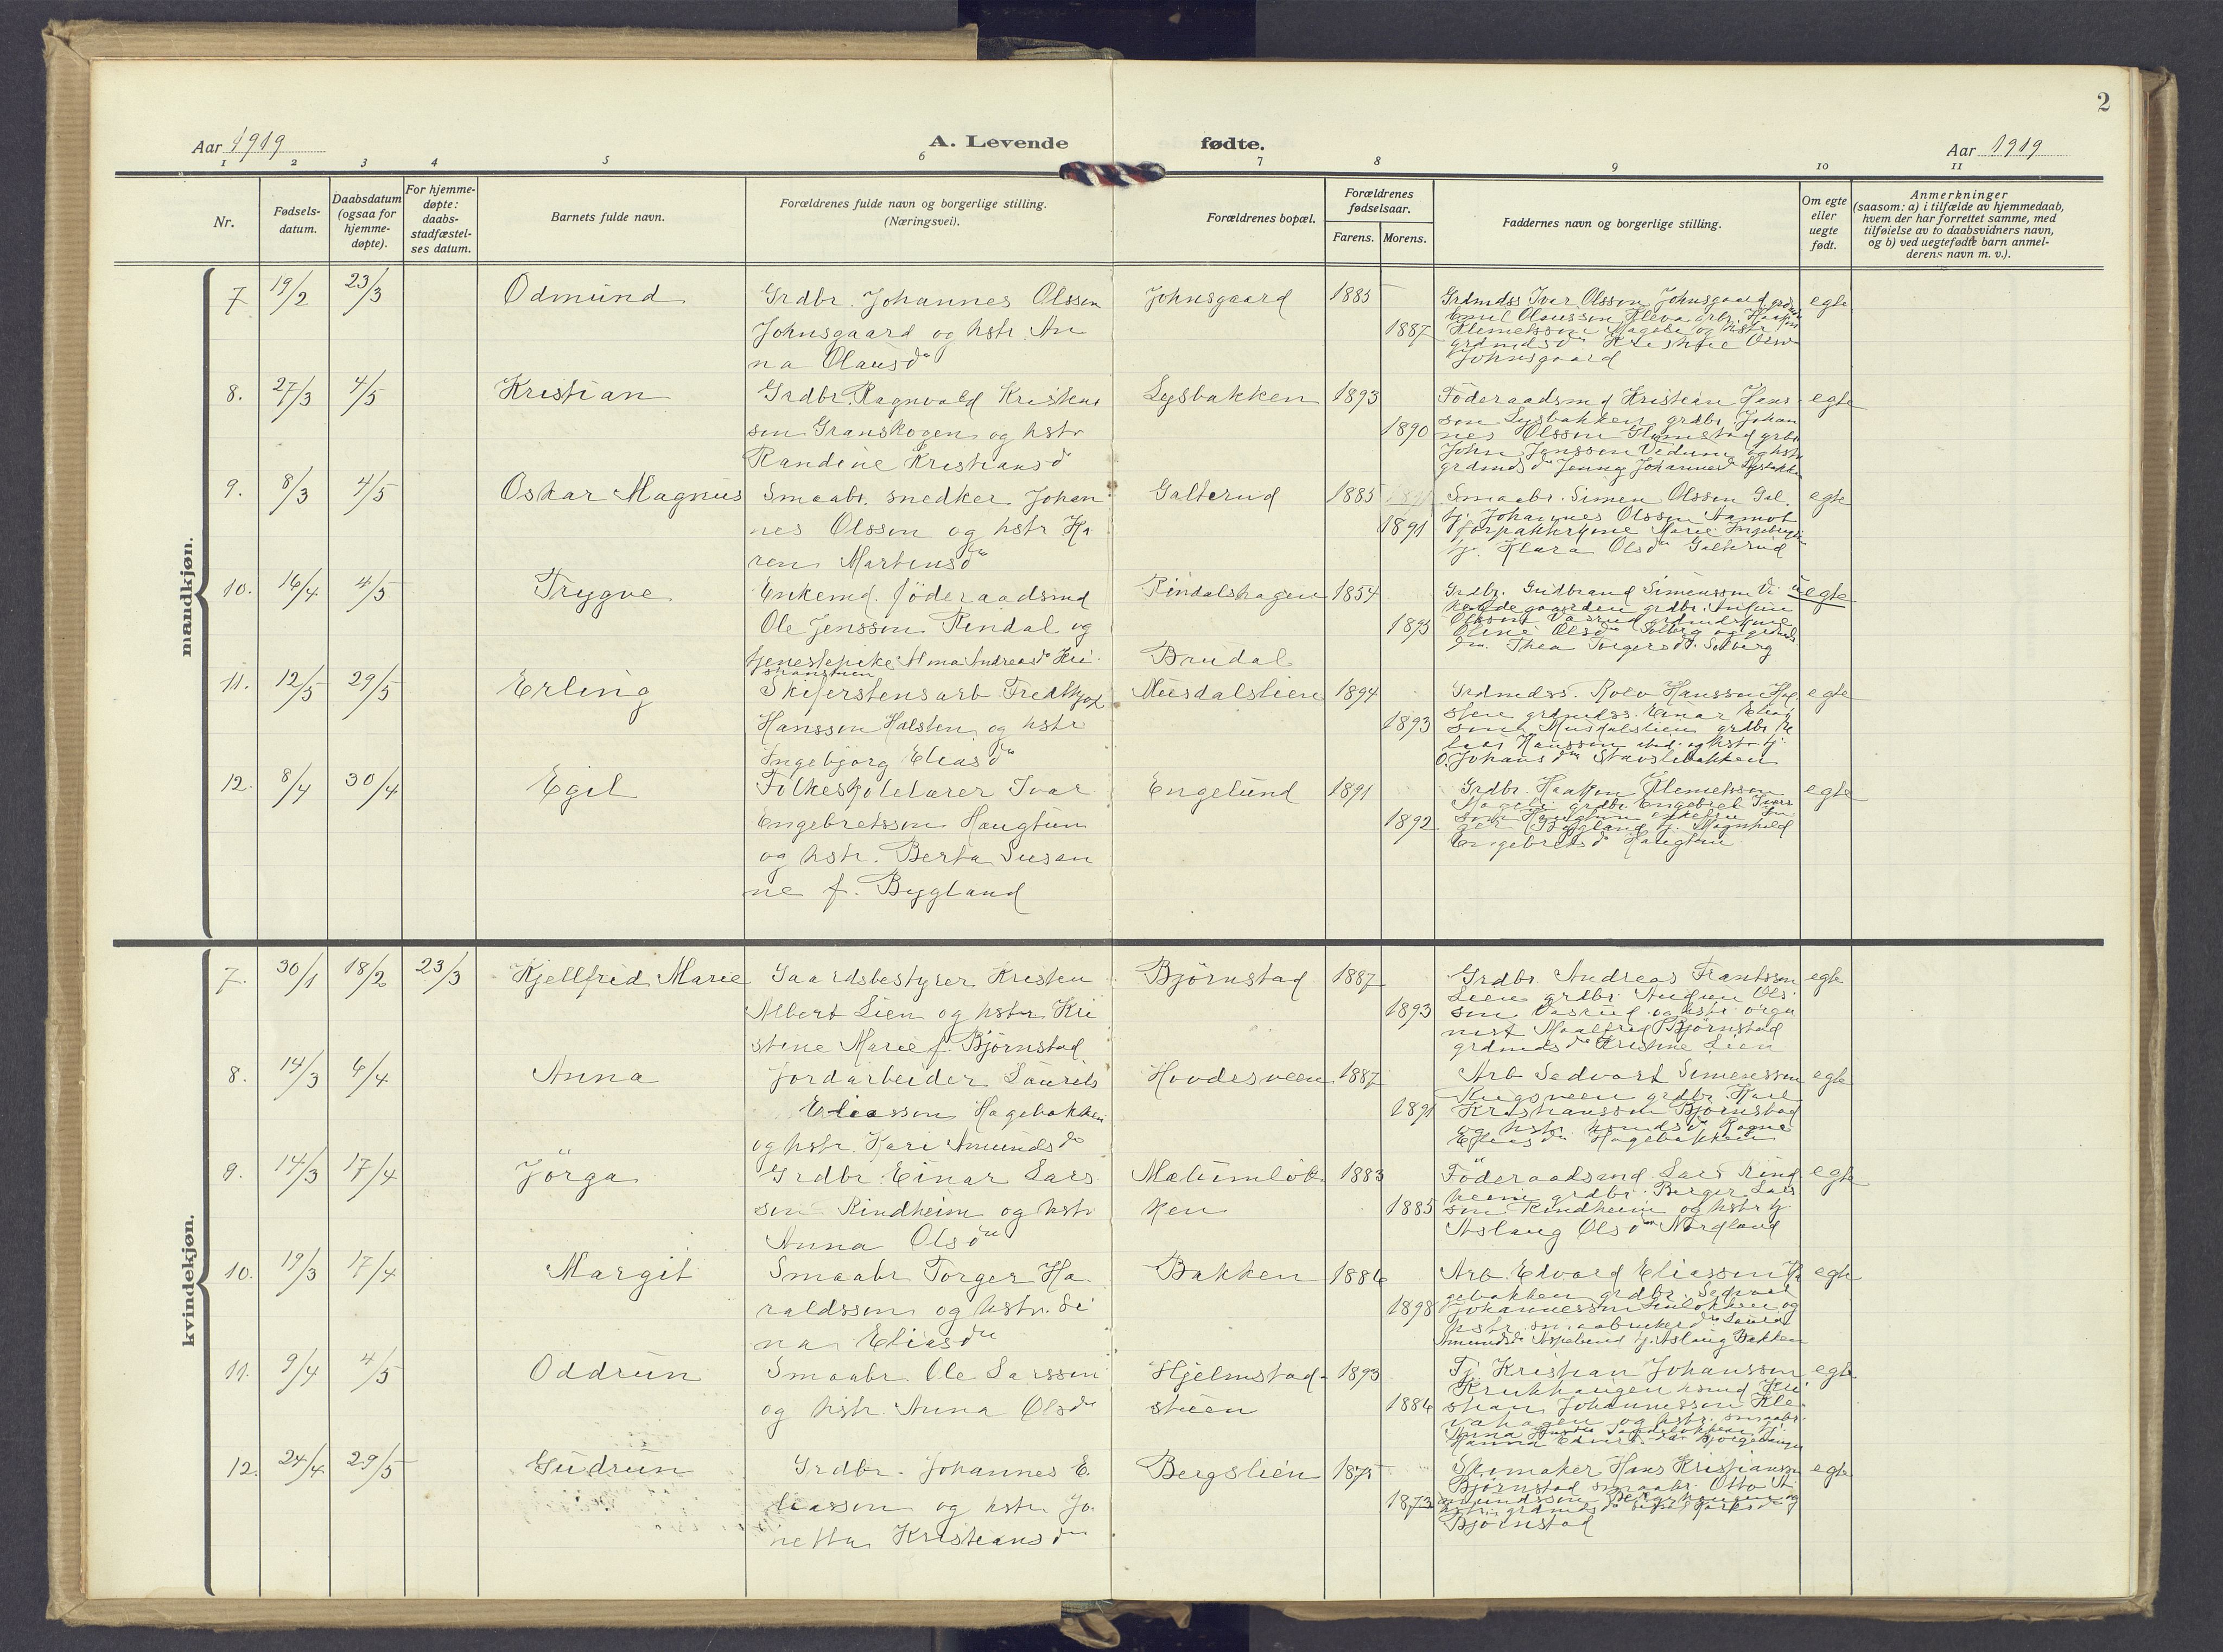 2
Aar 1919
A. Levende fødte.
Aar 1919
1 2 3 4 5 6 7 8 9 10 11
Nr.
Fødsels-
datum.
Daabsdatum
(ogsaa for
hjemme-
døpte).
For hjemme-
døpte:
daabs-
stadfæstel-
ses datum.
Barnets fulde navn.
Forældrenes fulde navn og borgerlige stilling.
(Næringsvei).
Forældrenes bopæl.
Forældrenes
fødselsaar.
Farens. Morens.
Faddernes navn og borgerlige stilling.
Om egte
eller
uegte
født.
Anmerkninger
(saasom: a) i tilfælde av hjemmedaab,
hvem der har forrettet samme, med
tilføielse av to daabsvidners navn,
og b) ved uegtefødte barn anmel-
derens navn m. v.).
mandkjøn.
7 19/2 23/3 Odmund
Grdbr. Johannes Olssen
Johnsgaard og hstr. An
na Olausdr
Johnsgaard 1885
1887
Grdmdss Ivar Olsson Johnsgaard
Emil Olausson Kleva grbr. Haakon
Klemetsson Mageli og hstr
Johnsgaard
egte
8. 27/3 4/5 Kristian
Grdbr. Ragnvald Kristian
sen Granskogen og hstr
Randine Kristiansd
Lysbakken 1893
1890
Föderaadsmd Kristian Hans
sen Lysbakken grdbr. Johan
nes Olsson Glomstad grbr
John Jonsson Vedum og hstr
grdmdsdr Jenny Johannesd Lysbakken
egte
9. 8/3 4/5 Oskar Magnus
Smaabr. snedker Johan
nes Olsson og hstr Ka
ren Martinsdr
Galterud 1885
1891
Smaabr. Simen Olsson Gal.
tj. Johannes Olsson Aamot
forpakterkone Marie
tj. Klara Olsdr Galterud
egte
10. 16/4 4/5 Trygve
Enkemd. föderaadsmd
Ole Jensson Rindal og
tjenestepike Alma Andreasdr Kri
stiansmen
Rindalshagen 1854
1895
Brudal
Grdbr. Gudbrand Simensson Vi
Olsson Vasrud
Oline Olsdr Solberg
Thea Torgersd. Solberg
uegte
11. 12/5 29/5 Erling
Skiferstensarb Fredthjof
Hansson Halsten og hstr
Ingebjørg Eliasdr
Musdalslien 1894
1893
Grdmdss. Rolv Hansson Hal
sten grdmdss. Einar Elias
sen Musdalslien grdbr
Hansson og hstr tj.
O. Johansdr Stavslibakken
egte
12. 8/4 30/4 Egil
Folkeskolelærer Ivar
Engebretsson Haugtun
og hstr. Berta Susan
ne f. Bygland
Engelund 1891
1892
Grdbr. Haakon Klemetsson
Mageli grdbr. Engebret Ivers
son Haugtun
Bygland tj. Magnhild
Engebretsd Haugtun
egte
kvindekjøn.
7. 30/1 18/2 23/3 Kjellfrid Marie
Gaardsbestyrer Kristen
Albert Lien og hstr Kri
stine Marie f. Björnstad
Björnstad 1887
1893
Grdbr. Andreas Frantsson
Lien grdbr. Audun Ols
sen Vasrud og hstr orga
nist Maalfrid Björnstad
grdmdsdr Kristine Lien
egte
8. 14/3 6/4 Anna
Jordarbeider Laurits
Eliasson Hagebakken
og hstr. Kari Amundsdr
Hovdesveen 1887
1891
Arb Sedvart Simensson
Kingsveen grdbr. Karl
Kristiansson Bjørnstad
og hstr. Ragna
Eliasdr Hagebakken
egte
9. 14/3 17/4 Jörga
Grdbr. Einar Lars
sen Rindheim og hstr
Anna Olsdr
Mælumlök
ken
1883
1885
Föderaadsmd. Lars Rind
heim grdbr. Berger Lars
son Rindheim og hstr tj.
Aslaug Olsdr Nordland
egte
10. 19/3 17/4 Margit
Smaabr Torger Ha
raldsson og hstr. Si
na Eliasdr
Bakken 1886
1898
Arb. Edvard Eliasson Ha
gebakken grdbr. Sedvart
Johannesson og
hstr. smaabrukerdr Laura
Amundsdr Aspelund tj. Aslaug Bakken
egte
11. 9/4 4/5 Oddrun
Smaabr Ole Larsson
og hstr. Anna Olsdr
Hjelmstad-
stuen
1893
1886
Tj. Kristian Johansson
Krukhaugen hsmd Kri
stian Johannesson Kle
vahagen og hstr. smaabr.
egte
12. 24/4 29/5 Gudrun
Grdbr. Johannes E.
liasson og hstr. Jo
netta Kristiansdr
Bergslien 1875
1873
Skomaker Hans Kristiansson
Björnstad smaabr. Otto A
mundsson
Björnstad
egte